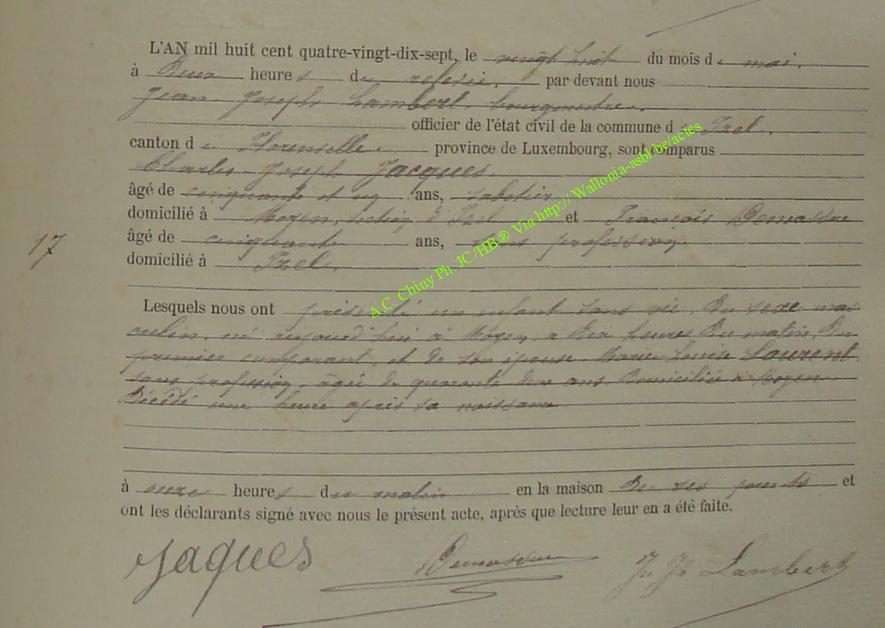 L'AN mil huit cent quatre-vingt-dix-sept, le vingt huit du mois de mai.
à Deux heures de relevée, par devant nous
Jean Joseph Lambert, bourgmestre,
officier de l'état civil de la commune d'Izel,
canton de Florenville, province de Luxembourg, sont comparus
Charles Joseph Jacques.
âgé de cinquante et un ans, sabotier
domicilié à Moyen, section d'Izel et François
17
âgé de cinquante ans, sans profession,
domicilié à Izel.
Lesquels nous ont présenté un enfant sans vie, du sexe mas
culin, né aujourd'hui à Moyen, à heures du matin, du
premier comparant, et de son épouse Marie Louise Laurent
sans profession, âgée de quarante deux ans, domiciliée à Moyen.
Décédé une heure après sa naissance
à onze heures du matin en la maison de ses parents et
ont les déclarants signé avec nous le présent acte, après que lecture leur en a été faite.
Jaques
J. Js Lambert
A.C. Chiny Ph. JC /HB® Via http:// Wallonia-asbl.be/actes